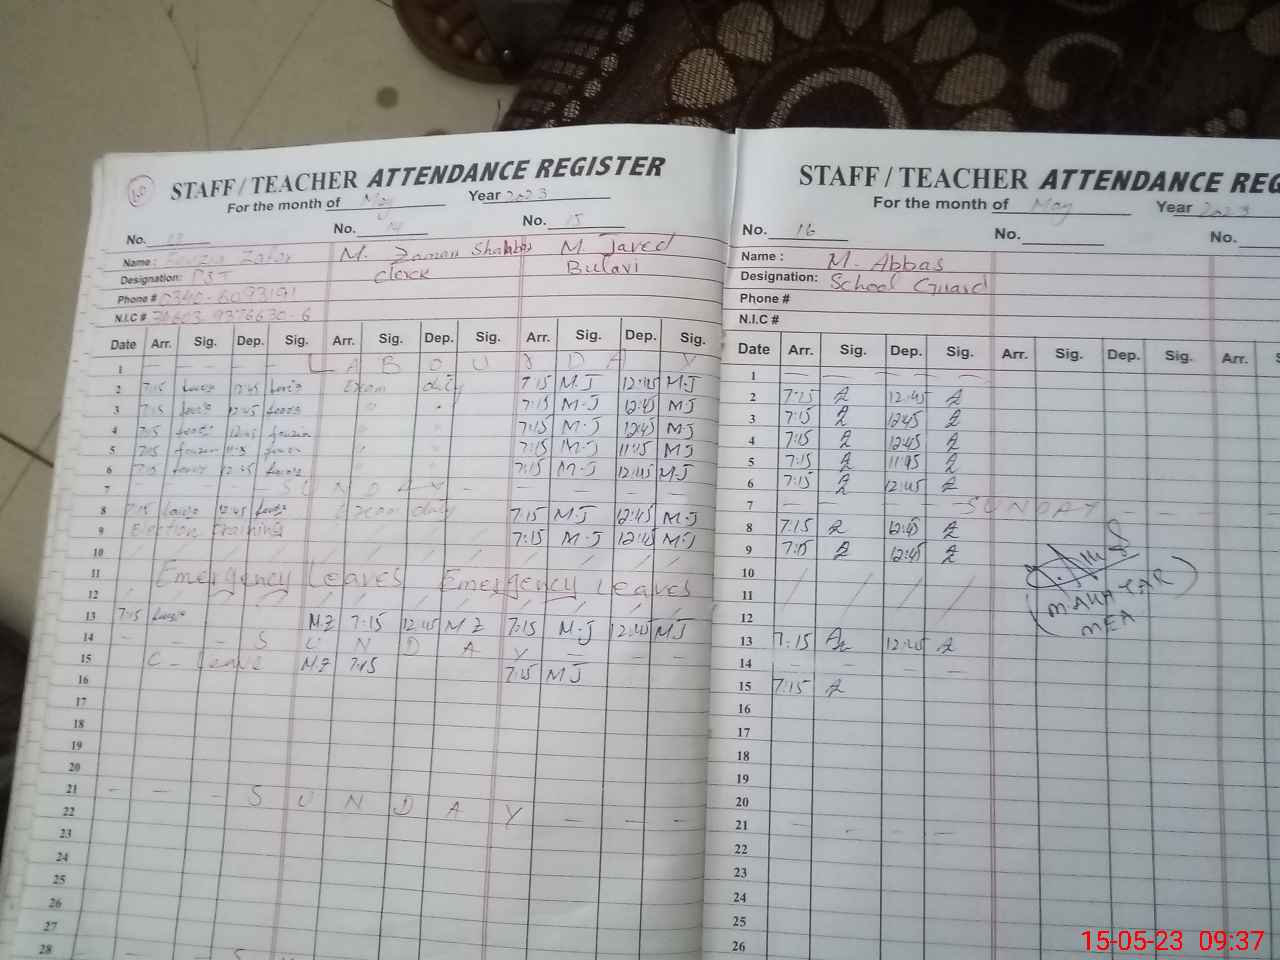 STAFF / TEACHER ATTENDANCE REGISTER
For the month of May Year 2023
No. 13 No. 14 No. 15
Name : Fouzia Zafar M. Zaman Shabbir M. Javed
Designation: PST clerk Bulavi
Phone #
N.I.C #
Date Arr. Sig. Dep. Sig. Arr. Sig. Dep. Sig. Arr. Sig. Dep. Sig.
1 — — — — L A B O U R D A Y
2 7:15 12:45 Exam duty 7:15 M.J 12:45 M.J
3 7:15 12:45 " " 7:15 M-J 12:45 MJ
4 7:15 12:45 " " 7:15 M-J 12:45 MJ
5 7:15 " " 7:15 M-J 11:45 MJ
6 7:15 12:45 " " 7:15 M-J 12:45 MJ
7 — — — S U N D A Y - — — — —
8 7:15 12:45 Exam duty 7:15 M.J 12:45 M.J
9 Election training 7:15 M-J 12:45 M.J
10
11 Emergency Leaves Emergency Leaves
12
13 7:15 MZ 7:15 12:45 MZ 7:15 M.J 12:45 MJ
14 — — — S U N D A Y — — —
15 C - leave MZ 7:15 7:15 MJ
16
17
18
19
20
21 — — — S U N D A Y — — — —
22
23
24
25
26
27
28
STAFF / TEACHER ATTENDANCE REG
For the month of May Year 2023
No. 16 No. No.
Name : M. Abbas
Designation: School Guard
Phone #
N.I.C #
Date Arr. Sig. Dep. Sig. Arr. Sig. Dep. Sig. Arr. S
1 — — — — — —
2 7:15 12:45
3 7:15 12:45
4 7:15 12:45
5 7:15 11:45
6 7:15 12:45
7 — — — — SUNDAY — — — —
8 7:15 12:45
9 7:15 12:45
10
11
12
(MAHAYAR)
MEA
13 7:15 12:45
14 — — — —
15 7:15
16
17
18
19
20
21 — — — —
22
23
24
25
26
15-05-23 09:37